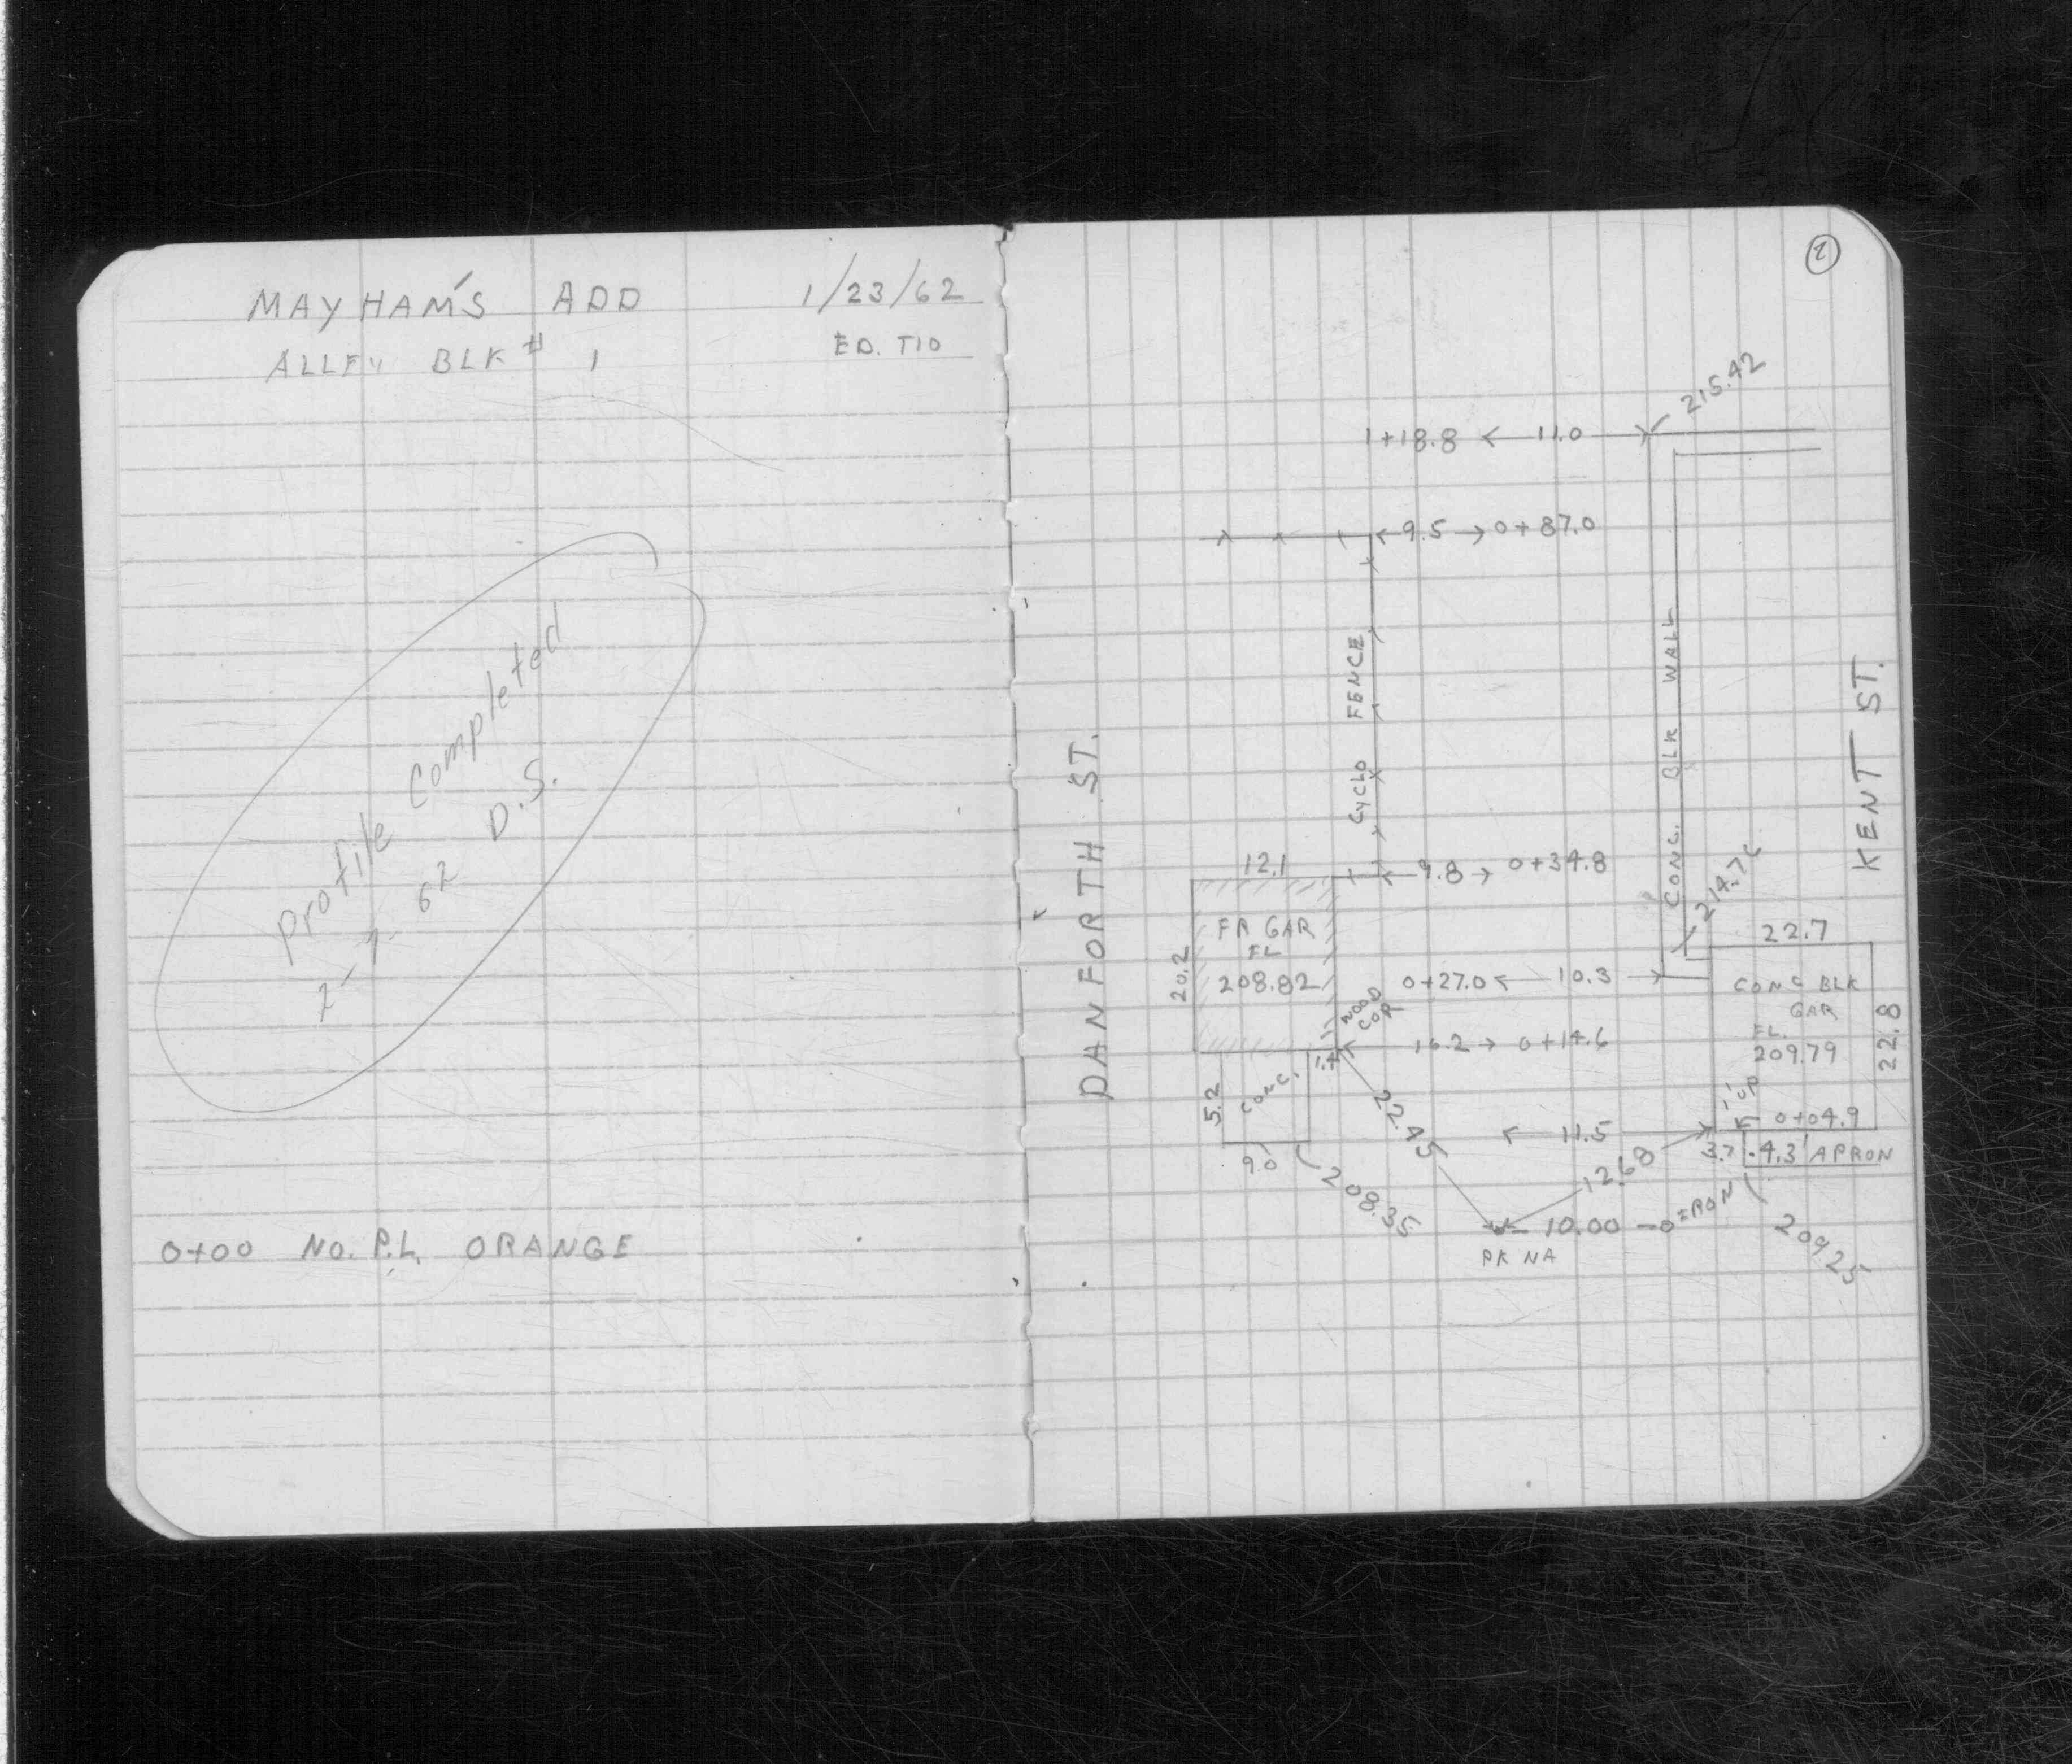 MAYHAM'S ADD 1/23/62
ALLEY BLK # 1 ED. TIO
Profile Completed
2-7-62 D.S.
0+00 NO. P.L. ORANGE
2
215.42
1+18.8 11.0
9.5 0+87.0
CYCLO FENCE
CONC. BLK WALL
KENT ST.
DANFORTH ST.
12.1 9.8 0+34.8
22.7
20.2
FR GAR
FL
208.82
WOOD
COR
0+27.0 10.3
CONC BLK
GAR
FL.
209.79
22.8
0+14.6
1.4
5.2
CONC.
9.0
208.35
22.45
11.5
UP
0+04.9
3.7 4.3' APRON
12.68
10.00 IRON
PK NA
209.25